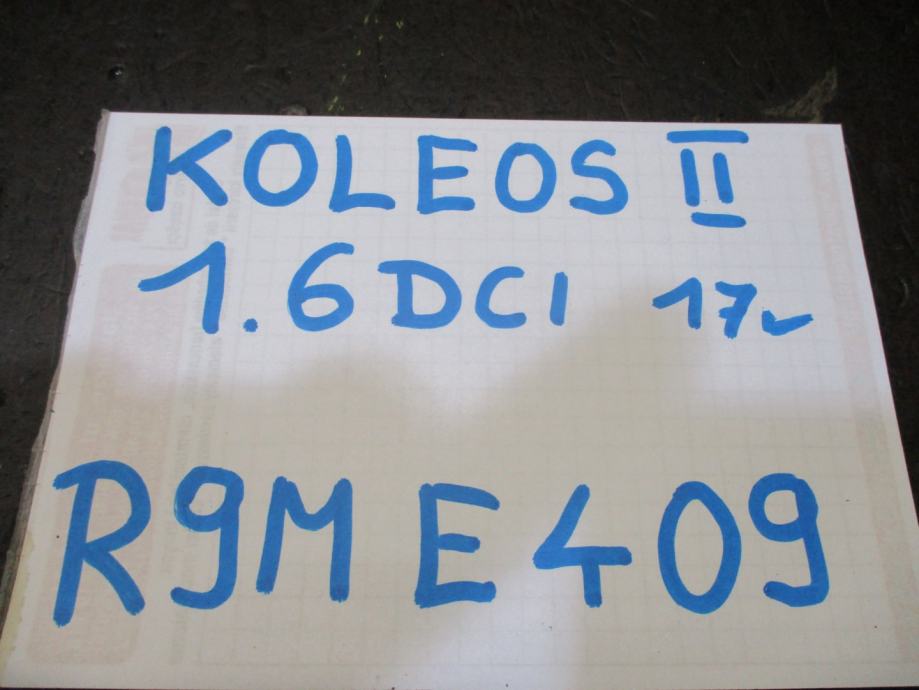 KOLEOS II
1.6 DCI 17r
R9M E409